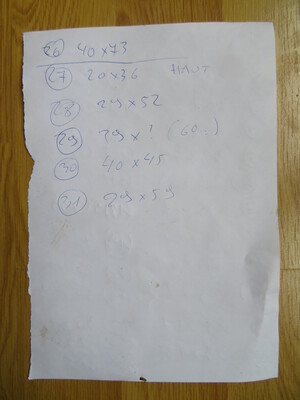 26 40 x 73
27 20 x 36 HAUT
28 29 x 52
29 29 x ! (60...)
30 40 x 45
31 29 x 59